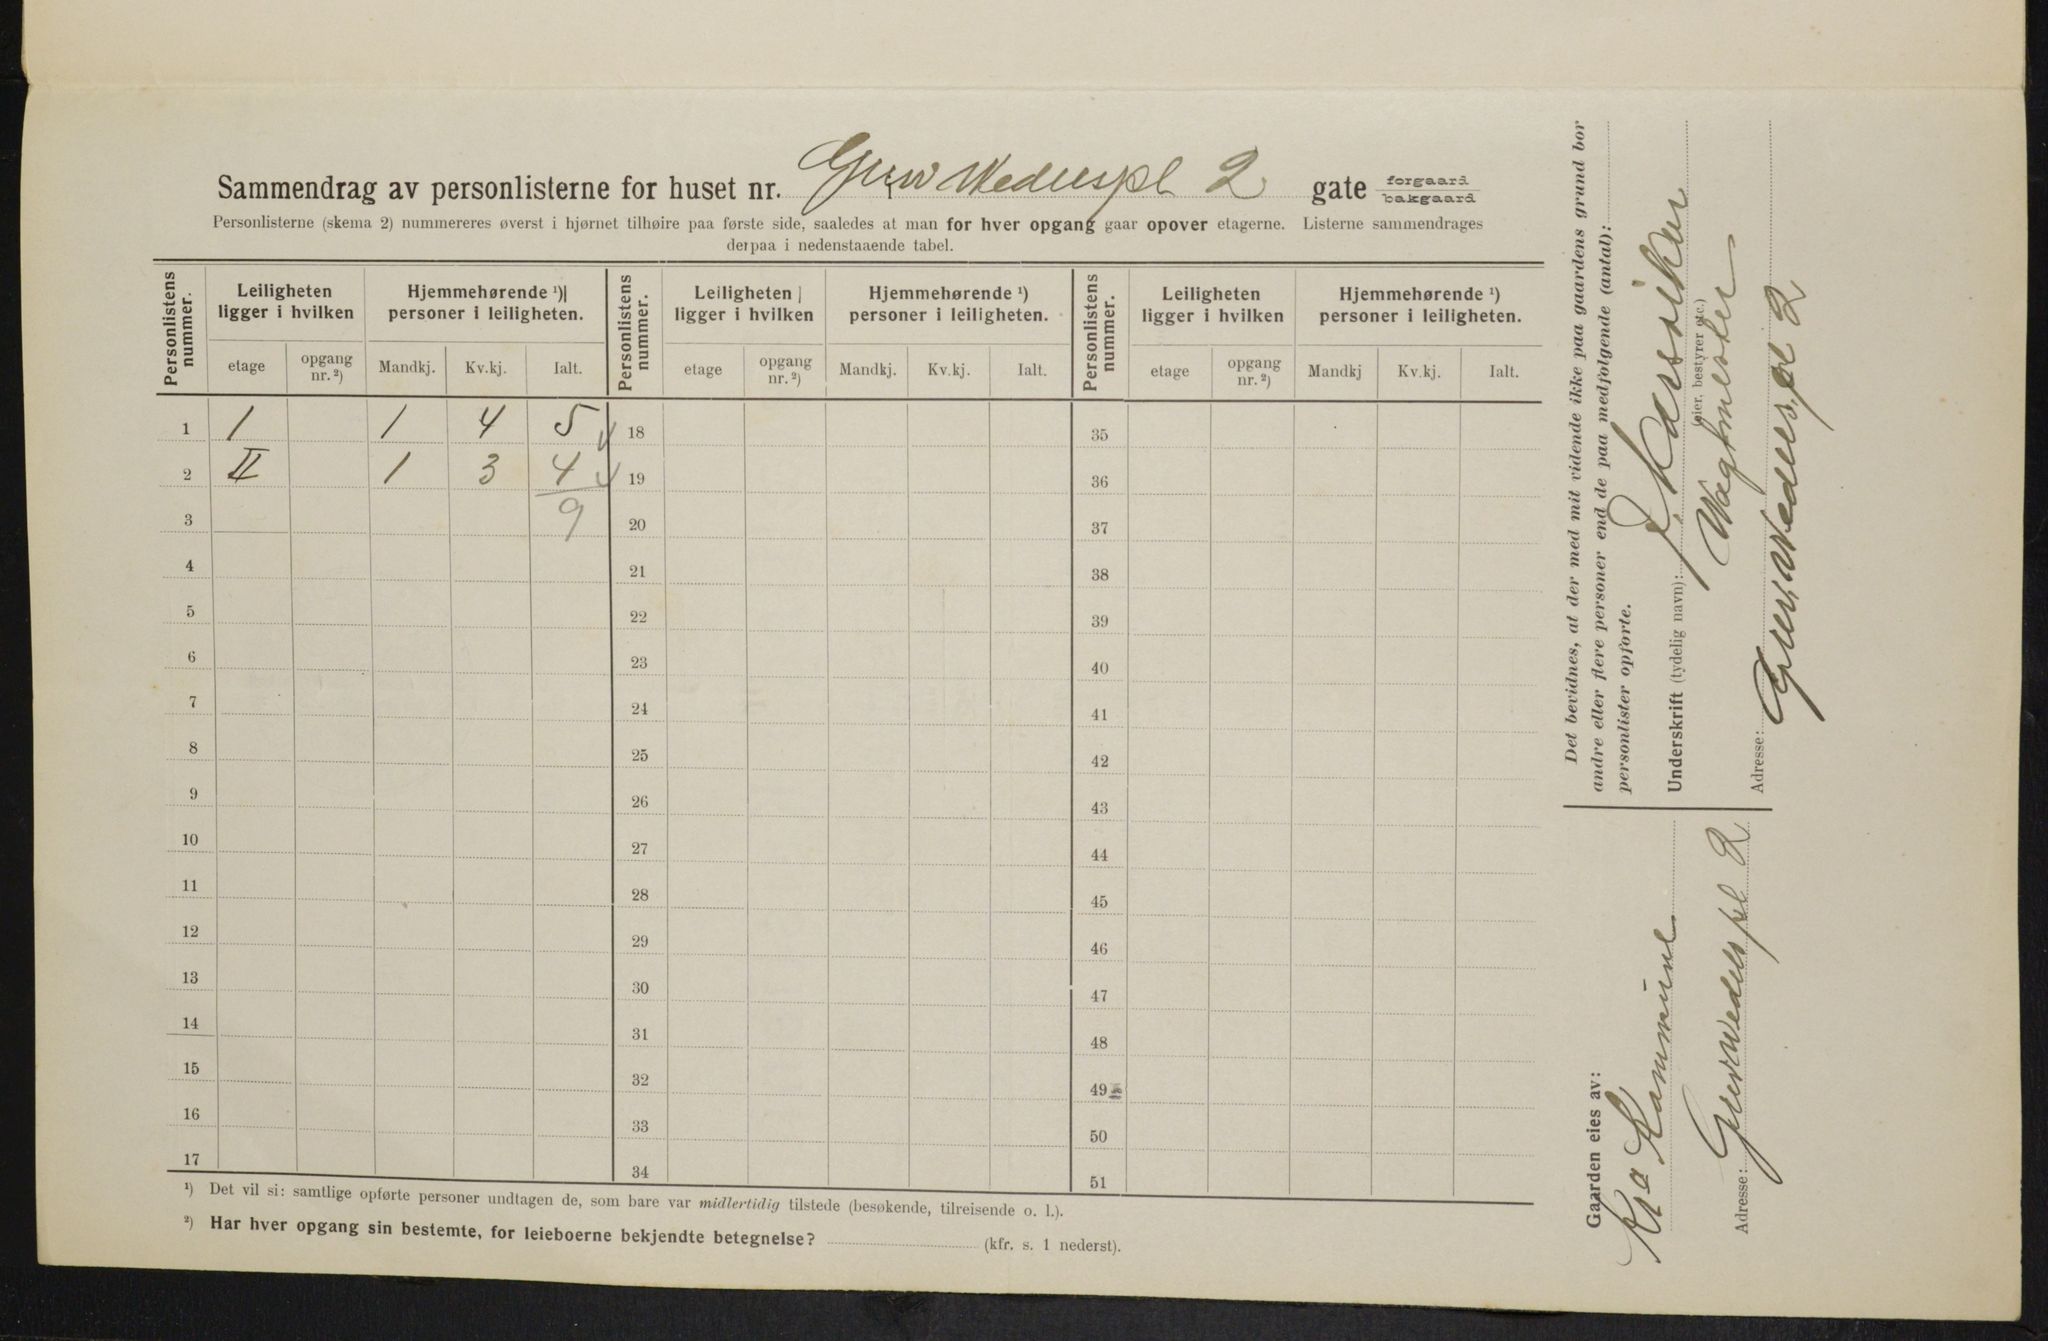 Sammendrag av personlisterne for huset nr. Grev Wedels pl 2 gate forgaard bakgaard
Personlisterne (skema 2) nummereres øverst i hjørnet tilhøire paa første side, saaledes at man for hver opgang gaar opover etagerne. Listerne sammendrages
derpaa i nedenstaaende tabel.
Personlistens nummer. Leiligheten ligger i hvilken Hjemmehørende ¹) personer i leiligheten. Personlistens nummer. Leiligheten ligger i hvilken Hjemmehørende ¹) personer i leiligheten. Personlistens nummer. Leiligheten ligger i hvilken Hjemmehørende ¹) personer i leiligheten.
etage opgang nr. ²) Mandkj. Kv.kj. Ialt. etage opgang nr. ²) Mandkj. Kv.kj. Ialt. etage opgang nr. ²) Mandkj Kv.kj. Ialt.
1 1 1 4 5 18 35
2 II 1 3 4 19 36
3 9 20 37
4 21 38
5 22 39
6 23 40
7 24 41
8 25 42
9 26 43
10 27 44
11 28 45
12 29 46
13 30 47
14 31 48
15 32 49
16 33 50
17 34 51
¹) Det vil si: samtlige opførte personer undtagen de, som bare var midlertidig tilstede (besøkende, tilreisende o. l.).
²) Har hver opgang sin bestemte, for leieboerne bekjendte betegnelse? (kfr. s. 1 nederst).
Det bevidnes, at der med mit vidende ikke paa gaardens grund bor
andre eller flere personer end de paa medfolgende (antal):
personlister opforte.
Underskrift (tydelig navn):
(eier, bestyrer etc.)
Adresse: Grev Wedels pl 2
Gaarden eies av:
Kra Kommune
Adresse: Grev Wedels pl 2